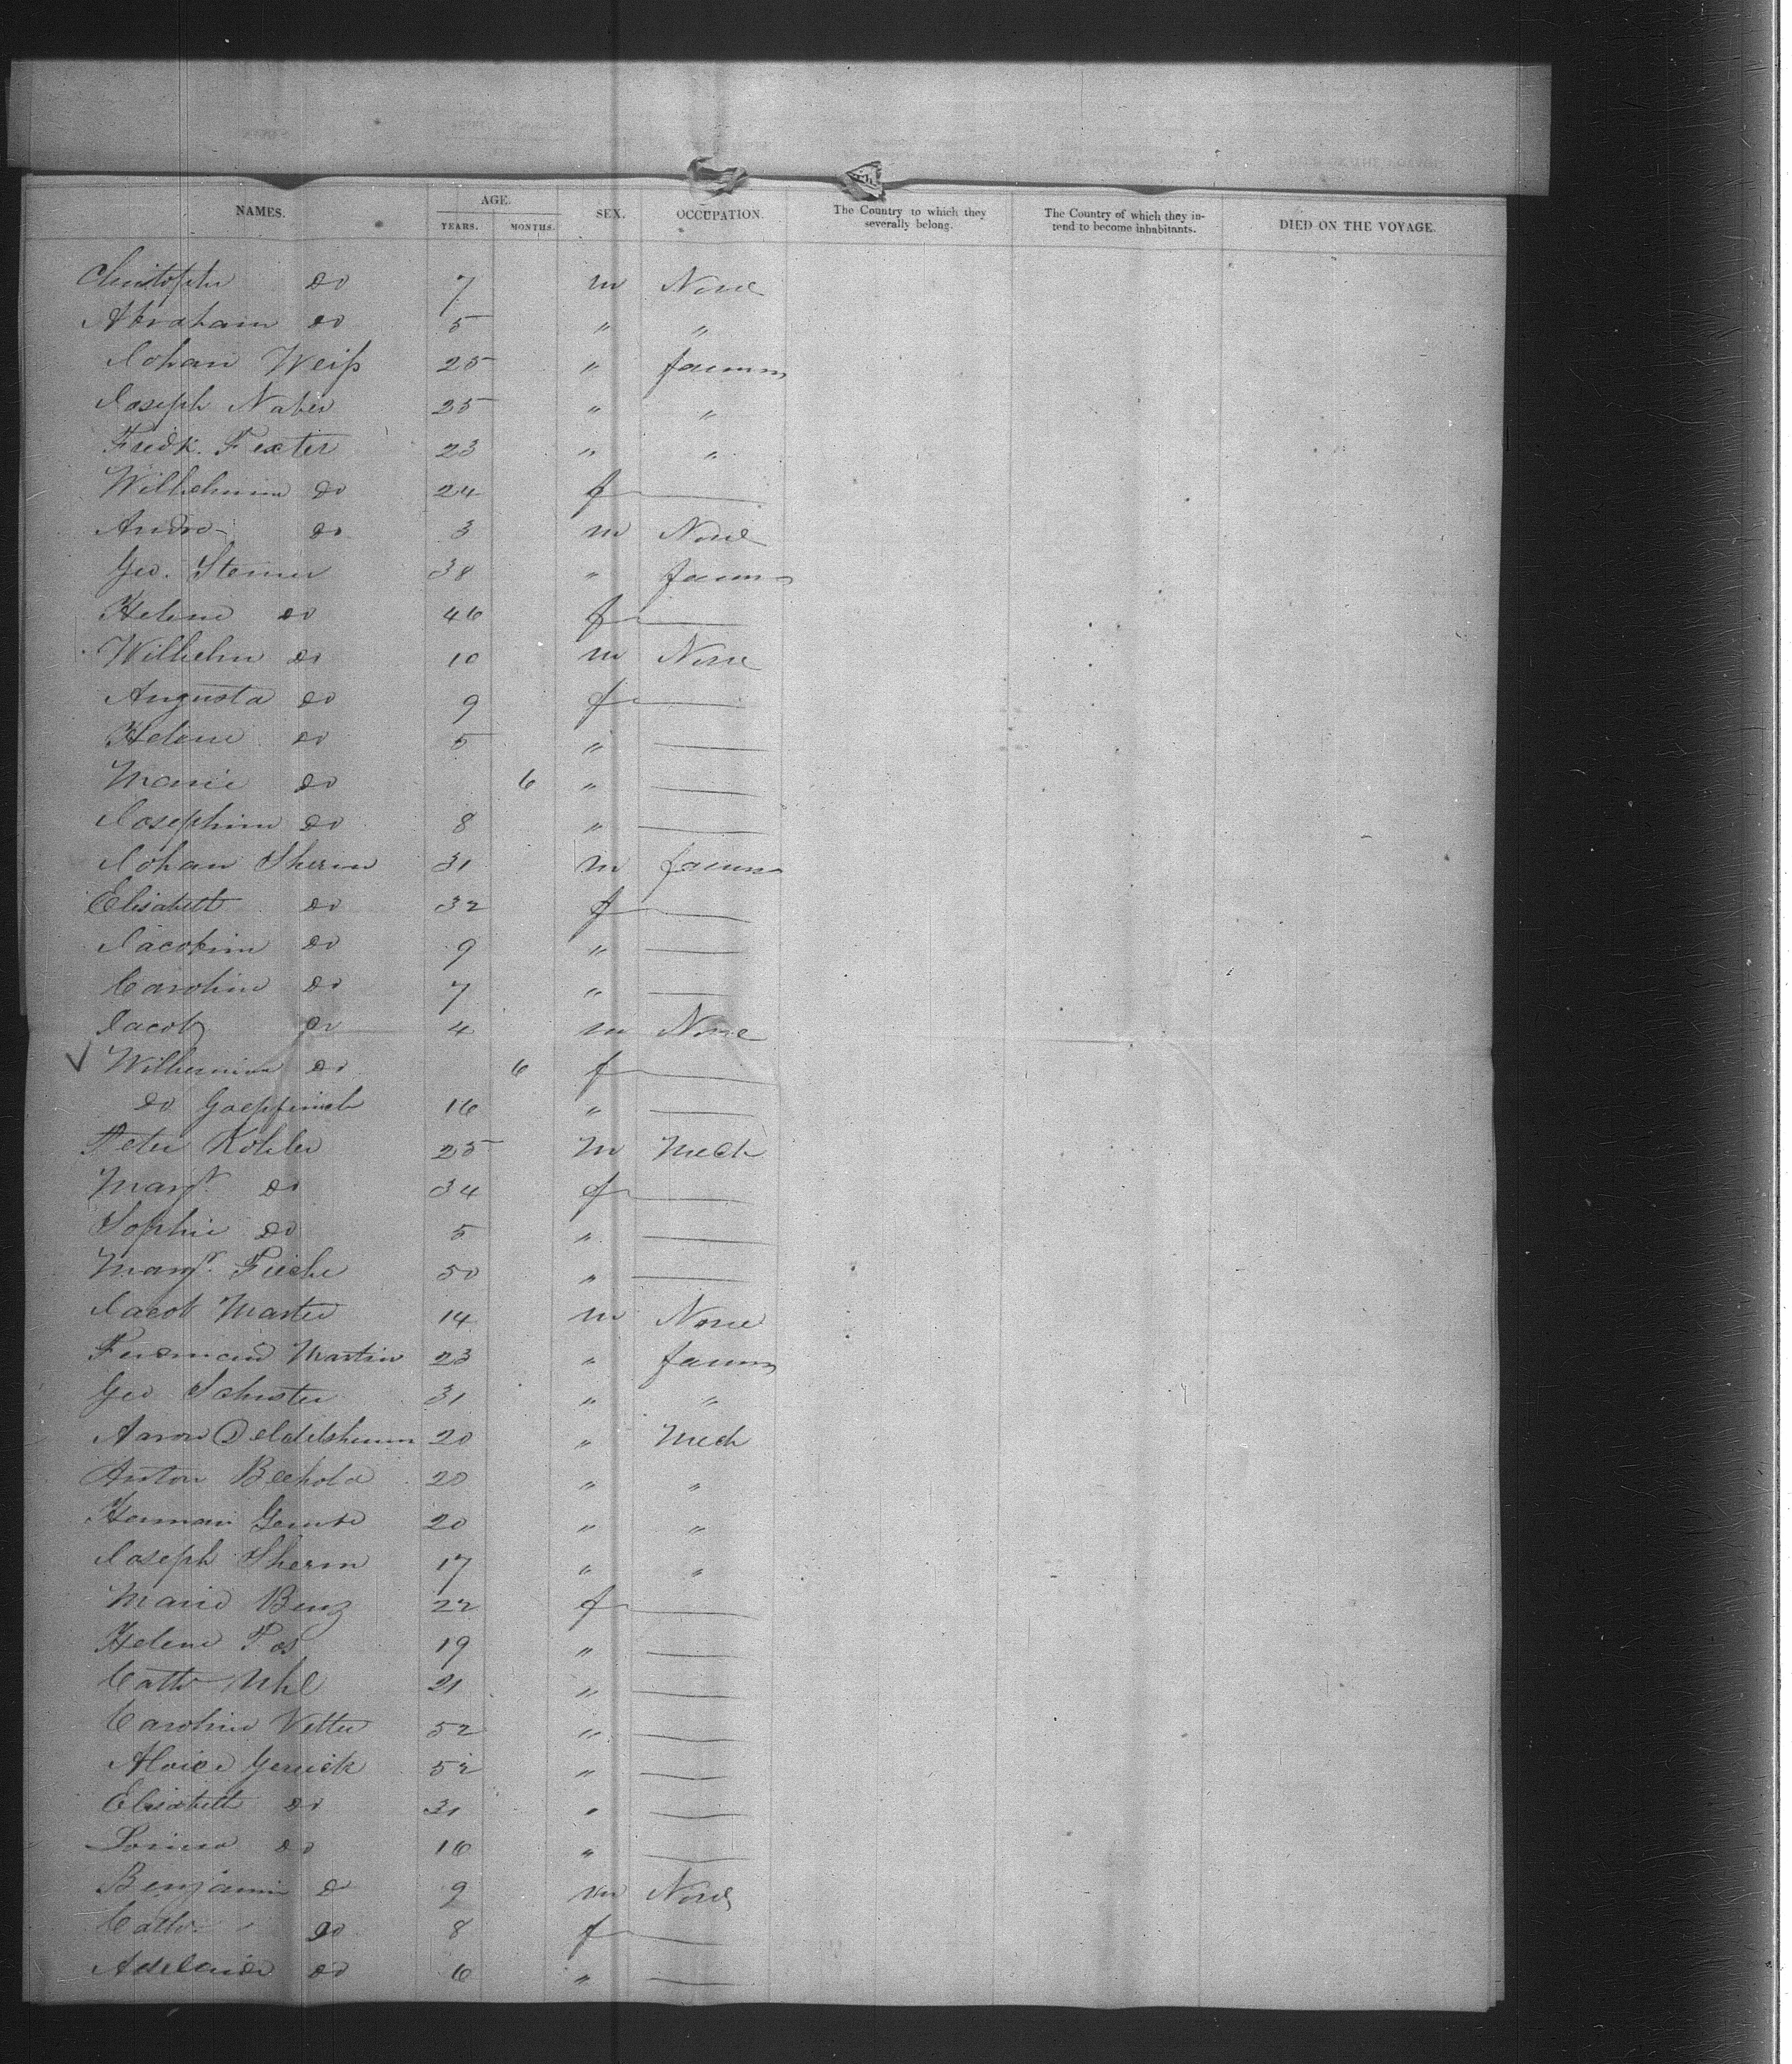 NAMES. AGE. YEARS. MONTHS. SEX. OCCUPATION. The Country to which they severally belong. The Country of which they intend to become inhabitants. DIED ON THE VOYAGE.
Christophe do 7 m None
Abraham do 5 " "
Johan Weiß 25 " farmer
Joseph Naber 25 " "
Fredk. Fexter 23 " "
Wilhelmina do 24 f
Andre do 3 m None
Geo. Steiner 38 " farmer
Helene do 46 f
Wilhelm do 10 m None
Augusta do 9 f
Helene do 5 "
Marie do 6 "
Josephine do 8 "
Johan Sherm 31 m farmer
Elisabeth do 32 f
Jacobine do 9 "
Caroline do 7 "
Jacob do 4 m None
Wilhermina do 6 f
do 16 "
Peter Kohler 25 m Mech
Margt. do 34 f
Sophie do 5 "
Margt. 50 "
Jacob Marter 14 m None
Ferdinand Martin 23 " farmer
Geo Schuster 31 " "
Aaron 20 " Mech
Anton Bechold 20 " "
Herman 20 " "
Joseph Sherm 17 " "
Marie Benz 22 f
Helene 19 "
Cathr Uhl 21 "
Caroline Vetter 52 "
52 "
Elisabeth do 31 "
do 16 "
Benjamin do 9 m None
Cathr. do 8 f
Adelaide do 6 "